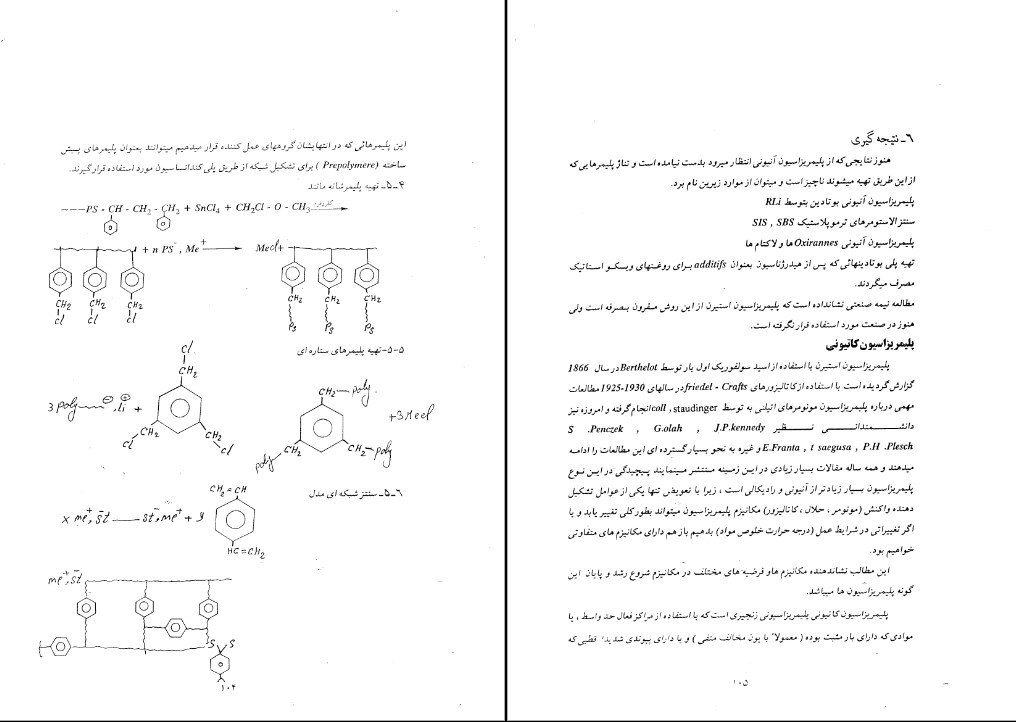 ۶ـ نتیجه گیری
هنوز نتایجی‌که از پلیمریزاسیون آنیونی انتظار میرود بدست نیامده است و تناژ پلیمرهایی که
از این طریق تهیه میشوند ناچیز است و میتوان از موارد زیرین نام برد.
پلیمریزاسیون آنیونی بوتادین بتوسط RLi
سنتز الاستومرهای ترموپلاستیک SIS , SBS
پلیمریزاسیون آنیونی Oxirannes ها و لاکتام ها
تهیه پلی بوتادینهائی که پس از هیدرژناسیون بعنوان additifs برای روغنهای ویسکو استاتیک
مصرف میگردند.
مطالعه نیمه صنعتی نشانداده است که پلیمریزاسیون استیرن از این روش مقرون بصرفه است ولی
هنوز در صنعت مورد استفاده قرار نگرفته است.
پلیمریزاسیون کاتیونی
پلیمریزاسیون استیرن با استفاده از اسید سولفوریک اول بار توسط Berthelot در سال 1866
گزارش گردیده است با استفاده از کاتالیزورهای friedel - Crafts در سالهای 1930-1925 مطالعات
مهمی درباره پلیمریزاسیون مونومرهای اتیلنی به توسط coll , staudinger انجام گرفته و امروزه نیز
دانشمندانی نظیر S .Penczek , G.olah , J.P.kennedy
E.Franta , t saegusa , P.H .Plesch و غیره به نحو بسیار گسترده ای این مطالعات را ادامه
میدهند و همه ساله مقالات بسیار زیادی در این زمینه منتشر مینمایند پیچیدگی در این نوع
پلیمریزاسیون بسیار زیادتر از آنیونی و رادیکالی است ، زیرا با تعویض تنها یکی از عوامل تشکیل
دهنده واکنش (مونومر ، حلال ، کاتالیزور) مکانیزم پلیمریزاسیون میتواند بطور کلی تغییر یابد و یا
اگر تغییراتی در شرایط عمل (درجه حرارت خلوص مواد) بدهیم باز هم دارای مکانیزم های متفاوتی
خواهیم بود.
این مطالب نشاندهنده مکانیزم ها و فرضیه های مختلف در مکانیزم شروع رشد و پایان این
گونه پلیمریزاسیون ها میباشد.
پلیمریزاسیون کاتیونی پلیمریزاسیونی زنجیری است که با استفاده از مراکز فعال حد واسط ، یا
موادی که دارای بار مثبت بوده ( معمولا" با یون مخالف منفی ) و یا دارای پیوندی شدیدا" قطبی که
۱۰۵
این پلیمرهائی که در انتهایشان گروههای عمل کننده قرار میدهیم میتوانند بعنوان پلیمرهای پیش
ساخته (Prepolymere ) برای تشکیل شبکه از طریق پلی کندانساسیون مورد استفاده قرار گیرند.
۴ـ۵ـ تهیه پلیمرشانه مانند
---PS - CH - CH2 - CH2 + SnCl4 + CH2Cl - O - CH3
+ n PS⁻, Me⁺ Mecl+
CH2 CH2 CH2 CH2 CH2 CH2
cl cl cl PS PS PS
۵-۵-تهیه پلیمرهای ستاره ای
cl
CH2
3 poly ⊖,li⊕ +
CH2 CH2
Cl cl
CH2—poly
+3Mecl
CH2 CH2—poly
poly
۶ـ۵ـ سنتز شبکه ای مدل
CH2=CH
x me⁺, st⁻ — st⁻, me⁺ + y
HC=CH2
me⁺, st⁻
S S
۱۰۴